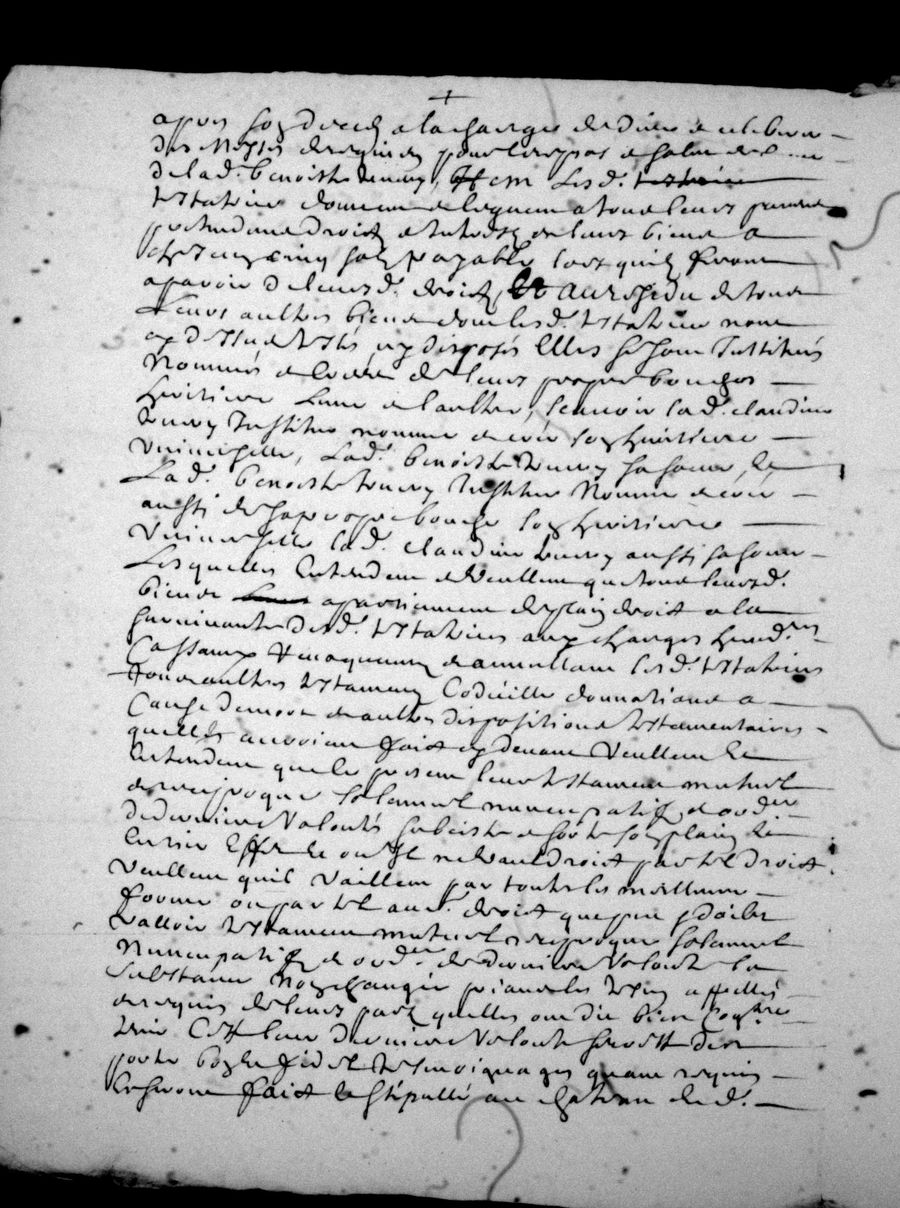 +
apres son deces a la charge de dire et celebrer
des Messes de requiem pour le repos et salut de l
de lad. benoiste Item Lesd.
testatrice donnent et leguent a tous leurs parents
pretendant droict et interest en leurs biens a
chescung cinq solz payable lors quilz feront
aparoir de leursd. droictz, Et Au residu de tous
Leurs aultres biens dont lesd. testatrice nont
cy dessus testés ny disposés Elles se sont Instituées
Nommées et de leurs propre bouches
heritiere Lune et laultre, scavoir lad. claudine
Institue nomme et son heritiere
Universelle, Lad. benoiste sa soeur, Et
Lad. benoiste Institue Nomme et
aussi de sa propre bouche son heritiere
Universelle lad. claudine aussi sa soeur
Lesquelles Entendent et Veullent que tous leursd.
biens apartiennent de plain droict a la
survivante desd. testatrices aux charges
Cassant revoquent et annullant lesd. testatrices
tous aultres testament Codicille donnations a
Cause de mort et aultres dispositions testamentaires
quelles auroient faict cy devant Veullent Et
Entendent que le present leur testament mutuel
et reciproque solempnel nuncupatif et ord.
de derniere Volonté subsiste et sorte son plain Et
Entier Effect et ou Il ne vaul droict par tel droict
veullent quil vaillent par toute les meilleure
forme ou par tel aud. droict que peu et doibt
valloir testament mutuel reciproque solempnel
Nuncupatif et ord. de derniere Volonté la
substance non changée priant les tesm apellés
et requis de leurs part quelles ont dit bien Cognoistre
tenir Cest leur derniere Volonté secrette et en
porter bon et fidel tesmoignages quant requis
En seront faict et stipullé au chateau dud.